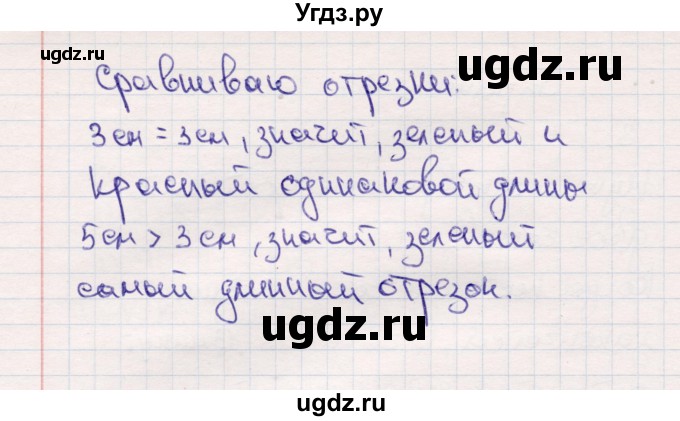 Угдз.ру
ugdz.ru
ugdz.ru
Сравниваю отрезки:
3 см = 3 см, значит, зеленый и
красный одинаковой длины
5 см > 3 см, значит, зеленый
самый длинный отрезок.
ugdz.ru
ugdz.ru